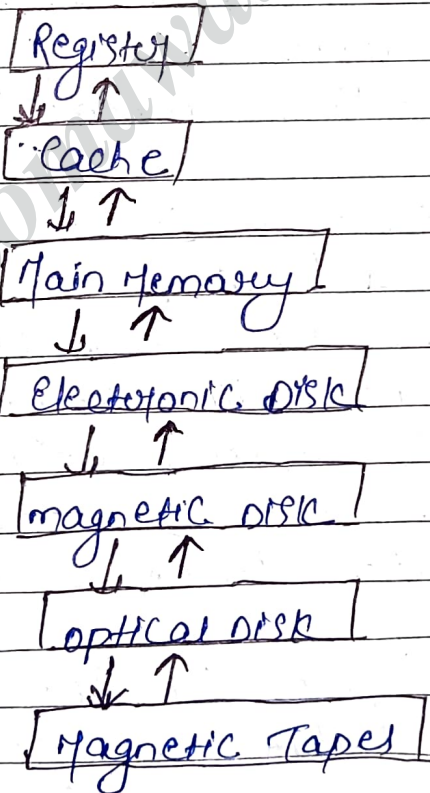 Register
Cache
Main Memory
Electronic Disk
magnetic Disk
optical Disk
Magnetic Tapes